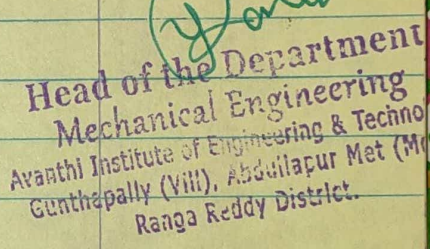 Head of the Department
Mechanical Engineering
Avanthi Institute of Engineering & Techno
Gunthapally (Vill), Abdullapur Met (M
Ranga Reddy District.